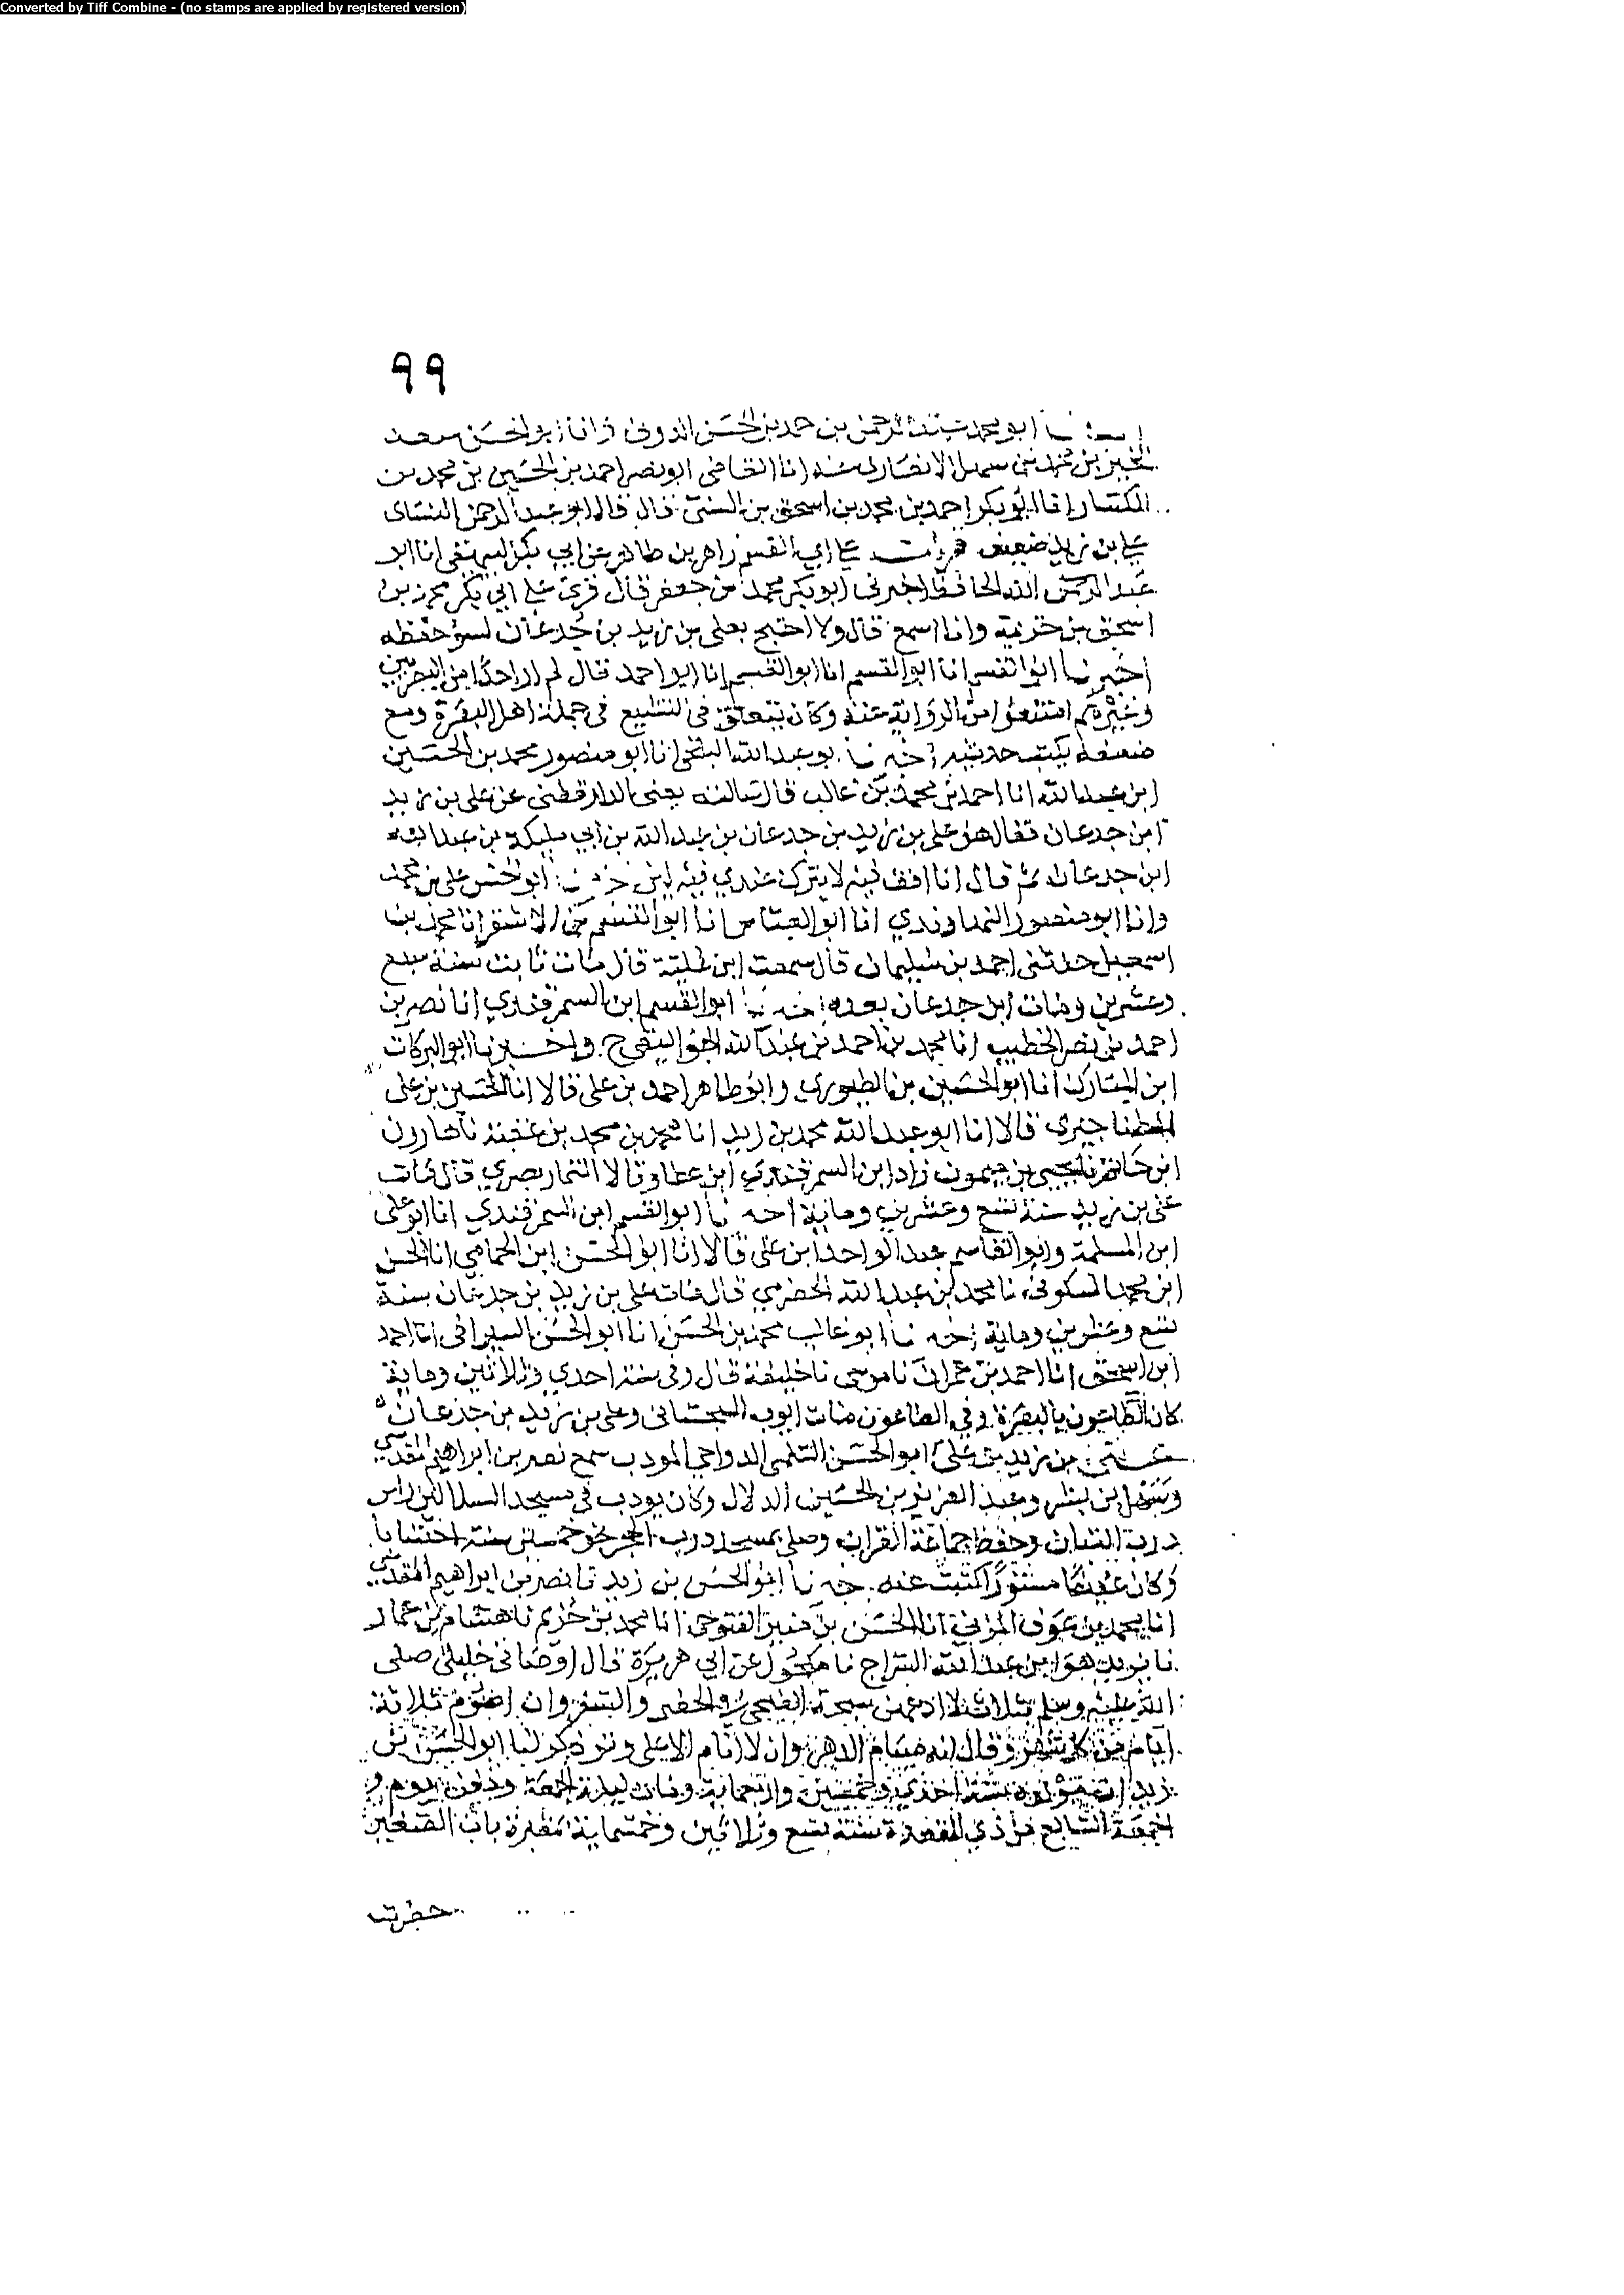 Converted by Tiff Combine - (no stamps are applied by registered version)
٩٩
ابو محمد عبد الرحمن بن حمد بن الحسن الدوني انا ابو الحسن سعد
الخير بن محمد بن سهل الانصاري عنه انا القاضي ابو نصر احمد بن الحسين بن محمد بن
الكسار انا ابو بكر احمد بن محمد بن اسحق بن السني قال قال ابو عبد الرحمن النساى
علي بن زيد ضعيف قرات على ابي القسم زاهر بن طاهر عن ابي بكر البيهقي انا ابو
عبد الله الحافظ اخبرني ابو بكر محمد بن جعفر قال قرئ على ابي بكر محمد بن
اسحق بن خزيمة وانا اسمع قال ولا احتج بعلى بن زيد بن جدعان لسو حفظه
اخبرنا ابو القسم انا ابو القسم انا ابو القسم انا ابو احمد قال لم ار احدا من البصريين
وغيرهم امتنعوا من الرواية عنه وكان يتعلق في التشيع في جملة اهل البصرة ومع
ضعفه يكتب حديثه اخبرنا ابو عبد الله البلخي انا ابو منصور محمد بن الحسين
ابن عبد الله انا احمد بن محمد بن غالب قال سالته يعنى الدارقطني عن على بن زيد
ابن جدعان فقال هو على بن زيد بن جدعان بن عبد الله بن ابي مليكة بن عبد الله
ابن جدعان ثم قال انا اقف فيه لا يترك عندي فيه لين اخبرنا ابو الحسن على بن محمد
وانا ابو منصور النهاوندي انا ابو العباس انا ابو القسم بن الاشقر انا محمد بن
اسمعيل حدثنى احمد بن سليمان قال سمعت ابن علية قال مات ثابت سنة سبع
وعشرين ومات ابن جدعان بعده اخبرنا ابو القسم ابن السمرقندي انا نصر بن
احمد بن نصر الخطيب انا محمد بن احمد بن عبد الله الجواليقي ح واخبرنا ابو البركات
ابن المبارك انا ابو الحسين بن الطيوري وابو طاهر احمد بن على قالا انا الحسين بن على
الطناجيري قالا انا ابو عبد الله محمد بن زيد انا محمد بن محمد بن عقبة نا هارون
ابن حاتم نا يحيى بن ميمون زاد ابن السمرقندي ابن عطا وقالا التمار بصري قال مات
على بن زيد سنة تسع وعشرين وماية اخبرنا ابو القسم ابن السمرقندي انا ابو على
ابن المسلمة وابو القاسم عبد الواحد بن على قالا انا ابو الحسن ابن الحمامي انا الحسن
ابن محمد السكوني نا محمد بن عبد الله الحضرمي قال مات على بن زيد بن جدعان سنة
تسع وعشرين وماية اخبرنا ابو غالب محمد بن الحسن انا ابو الحسن السيرافي انا احمد
ابن اسحق انا احمد بن عمران نا موسى نا خليفة قال وفى سنة احدي وثلاثين وماية
كان الطاعون بالبصرة وفي الطاعون مات ايوب السجستاني وعلى بن زيد بن جدعان
على بن زيد بن على ابو الحسن السلمى الدواحي المودب سمع نصر بن ابراهيم المقدسي
وسهل بن بشر وعبد العزيز بن الحسين الدلال وكان يودب في مسجد السلالين راس
درب التبان وحفظ جماعة القران وصلى بمسجد درب الحجر نحو خمسين سنة احتسابا
وكان عفيفا مستورا كتبت عنه اخبرنا ابو الحسن بن زيد نا نصر بن ابراهيم المقدسي
انا محمد بن عوف المزني انا الحسن بن منير التنوخي انا محمد بن خزيم نا هشام بن عمار
نا يزيد هو ابن عبد الله السراج نا مكحول عن ابي هريرة قال اوصاني خليلى صلى
الله عليه وسلم بثلاث لا ادعهن سبحة الضحى في الحضر والسفر وان اصوم ثلاثة
ايام من كل شهر وقال انه صيام الدهر وان لا انام الا على وتر ذكر لنا ابو الحسن بن
زيد ان مولده سنة احدي وخمسين واربعماية ومات ليلة الجمعة ودفن يوم
الجمعة السابع من ذي القعدة سنة تسع وثلاثين وخمسماية بمقبرة باب الصغير
حضرت